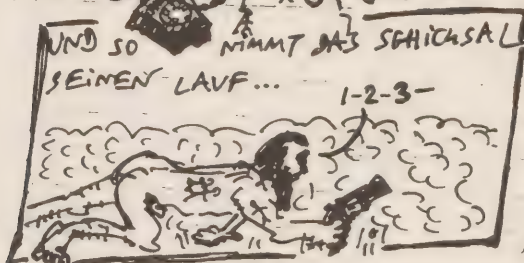 UND SO NIMMT DAS SCHICKSAL
SEINEN LAUF...
1-2-3-